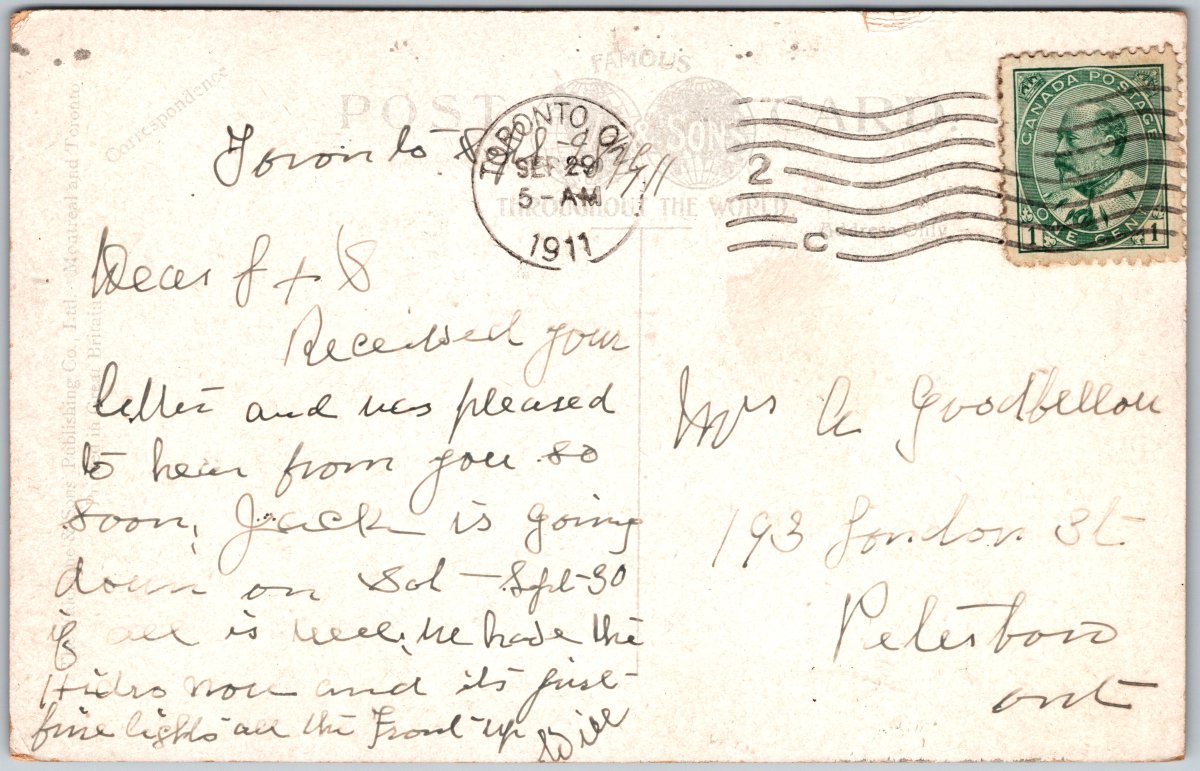 Correspondence
FAMOUS
POST CARD.
& SONS
THROUGHOUT THE WORLD
Address Only
& Sons Publishing Co., Ltd. Montreal and Toronto
in Great Britain
TORONTO, ONT.
SEP 29
5 - AM
1911
2
C
CANADA POSTAGE
1 ONE CENT 1
Toronto 1911
Dear J + S
Received your
letter and was pleased
to hear from you so
soon, Jack is going
down on Sat - Sept - 30
if all is well, we have the
Hidro now and its just
fine lights all the Front up
Will
Mrs A Goodfellow
193 London St
Peterboro
Ont